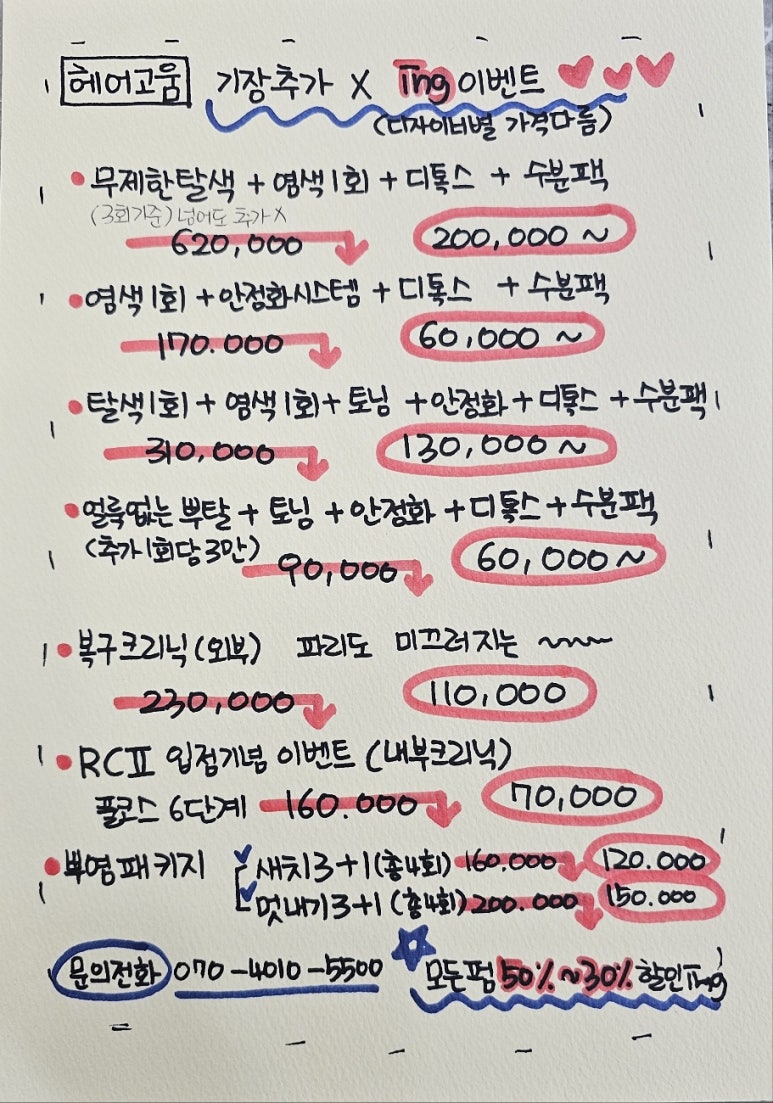 헤어고움 기장추가 X Ing 이벤트
(디자이너별 가격다름)
무제한탈색 + 염색1회 + 디톡스 + 수분팩
(3회기준) 넘어도 추가X
620,000 200,000 ~
염색1회 + 안정화시스템 + 디톡스 + 수분팩
170.000 60,000 ~
탈색1회 + 염색1회 + 토닝 + 안정화 + 디톡스 + 수분팩
310,000 130,000 ~
얼룩없는 뿌탈 + 토닝 + 안정화 + 디톡스 + 수분팩
(추가1회당 3만) 90,000 60,000 ~
복구크리닉(외부) 파리도 미끄러지는 ~~~
230,000 110,000
RCⅡ 입점기념 이벤트 (내부크리닉)
풀코스 6단계 160.000 70,000
뿌염패키지 새치3+1(총4회) 160.000 120.000
멋내기3+1 (총4회) 200.000 150.000
문의전화 070-4010-5500 모든펌 50%~30% 할인Ing